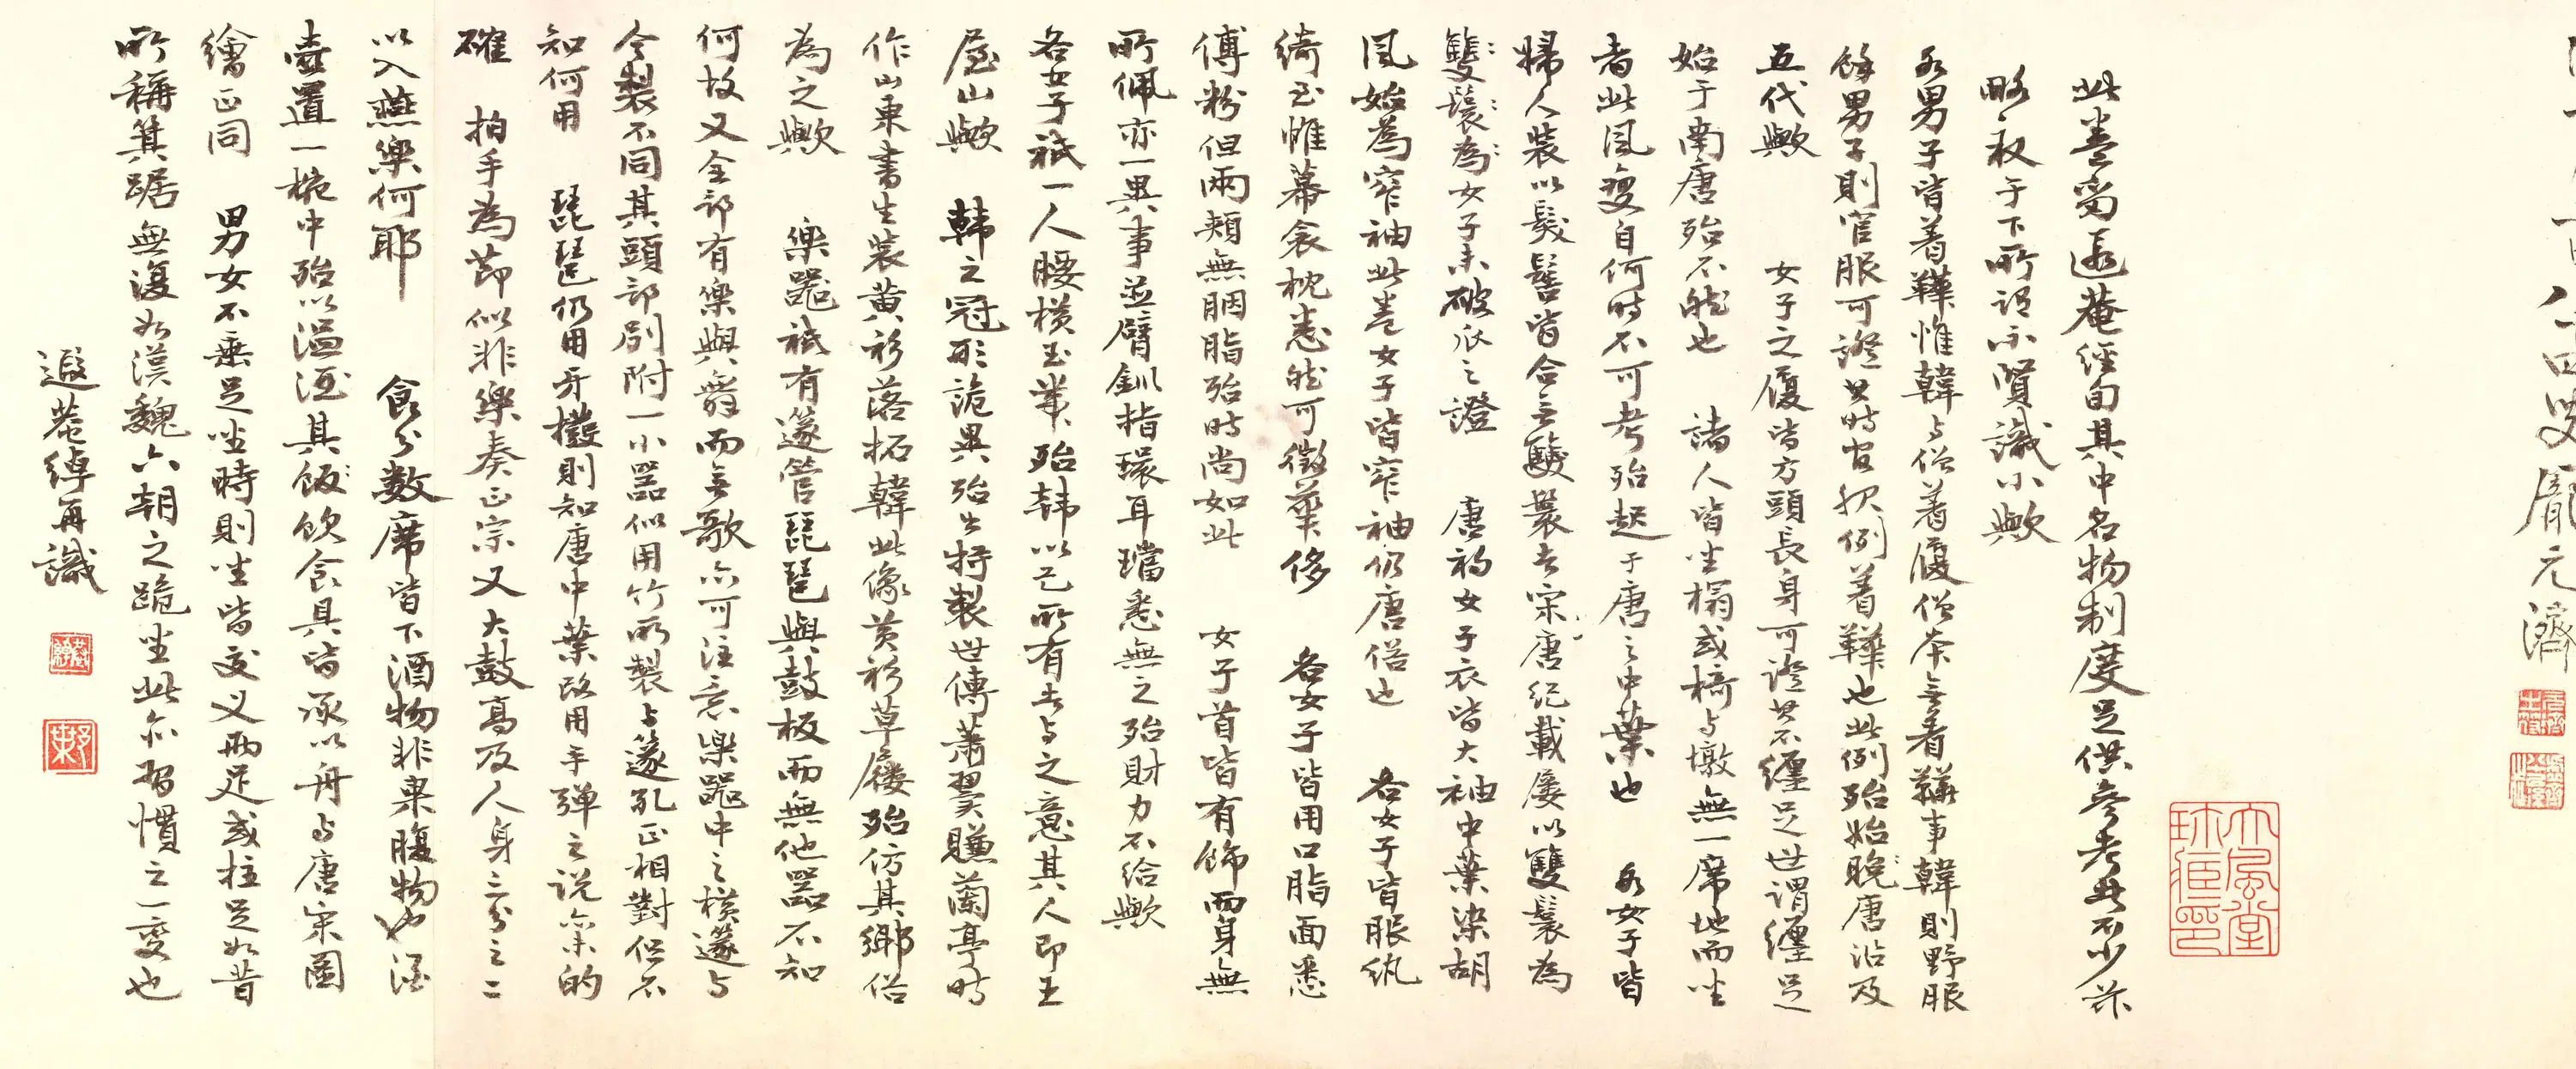 龐元濟
此卷留遐菴經旬其中名物制度足供參考者不少茲
略敘于下所謂不賢識小歟
各男子皆着鞾惟韓与僧着履僧本無着鞾事韓則野服
餘男子則官服可證其時官服例着鞾也此例殆始晚唐沿及
五代歟　女子之履皆方頭長身可證其不纏足世謂纏足
始于南唐殆不然也　諸人皆坐榻或椅与墩無一席地而坐
者此風變自何時不可考殆起于唐之中葉也　各女子皆
婦人裝以髮髻皆合無雙鬟者宋唐紀載屢以雙鬟為
雙鬟為女子未破瓜之證　唐初女子衣皆大袖中葉染胡
風始為窄袖此卷女子皆窄袖仍唐俗也　各女子皆服紈
綺至帷幕衾枕悉然可徵華侈　各女子皆用口脂面悉
傅粉但兩頰無胭脂殆時尚如此　女子首皆有飾而身無
所佩亦一異事並臂釧指環耳璫悉無之殆財力不給歟
各女子祇一人腰橫玉帶殆韓以己所有者与之意其人即王
屋山歟　韓之冠形詭異殆出特製世傳蕭翼賺蘭亭時
作山東書生裝黃衫落拓韓此像黃衫草屨殆仿其鄉俗
為之歟　樂器祇有篴管琵琶與鼓板而無他器不知
何故又全部有樂與舞而無歌亦可注意樂器中之橫篴与
今製不同其頭部別附一小器似用竹所製与篴孔正相對但不
知何用　琵琶仍用牙撥則知唐中葉改用手彈之說亦未的
確　拍手為節似非樂奏正宗又大鼓高及人身三分之二
以入燕樂何耶　食分數席皆下酒物非果腹物也酒
壺置一椀中殆以溫酒其飯飲食具皆承以舟与唐宋圖
繪正同　男女不垂足坐時則坐皆交叉兩足或柱足如昔
所稱箕踞無復如漢魏六朝之跪坐此亦習慣之一變也
遐菴綽再識